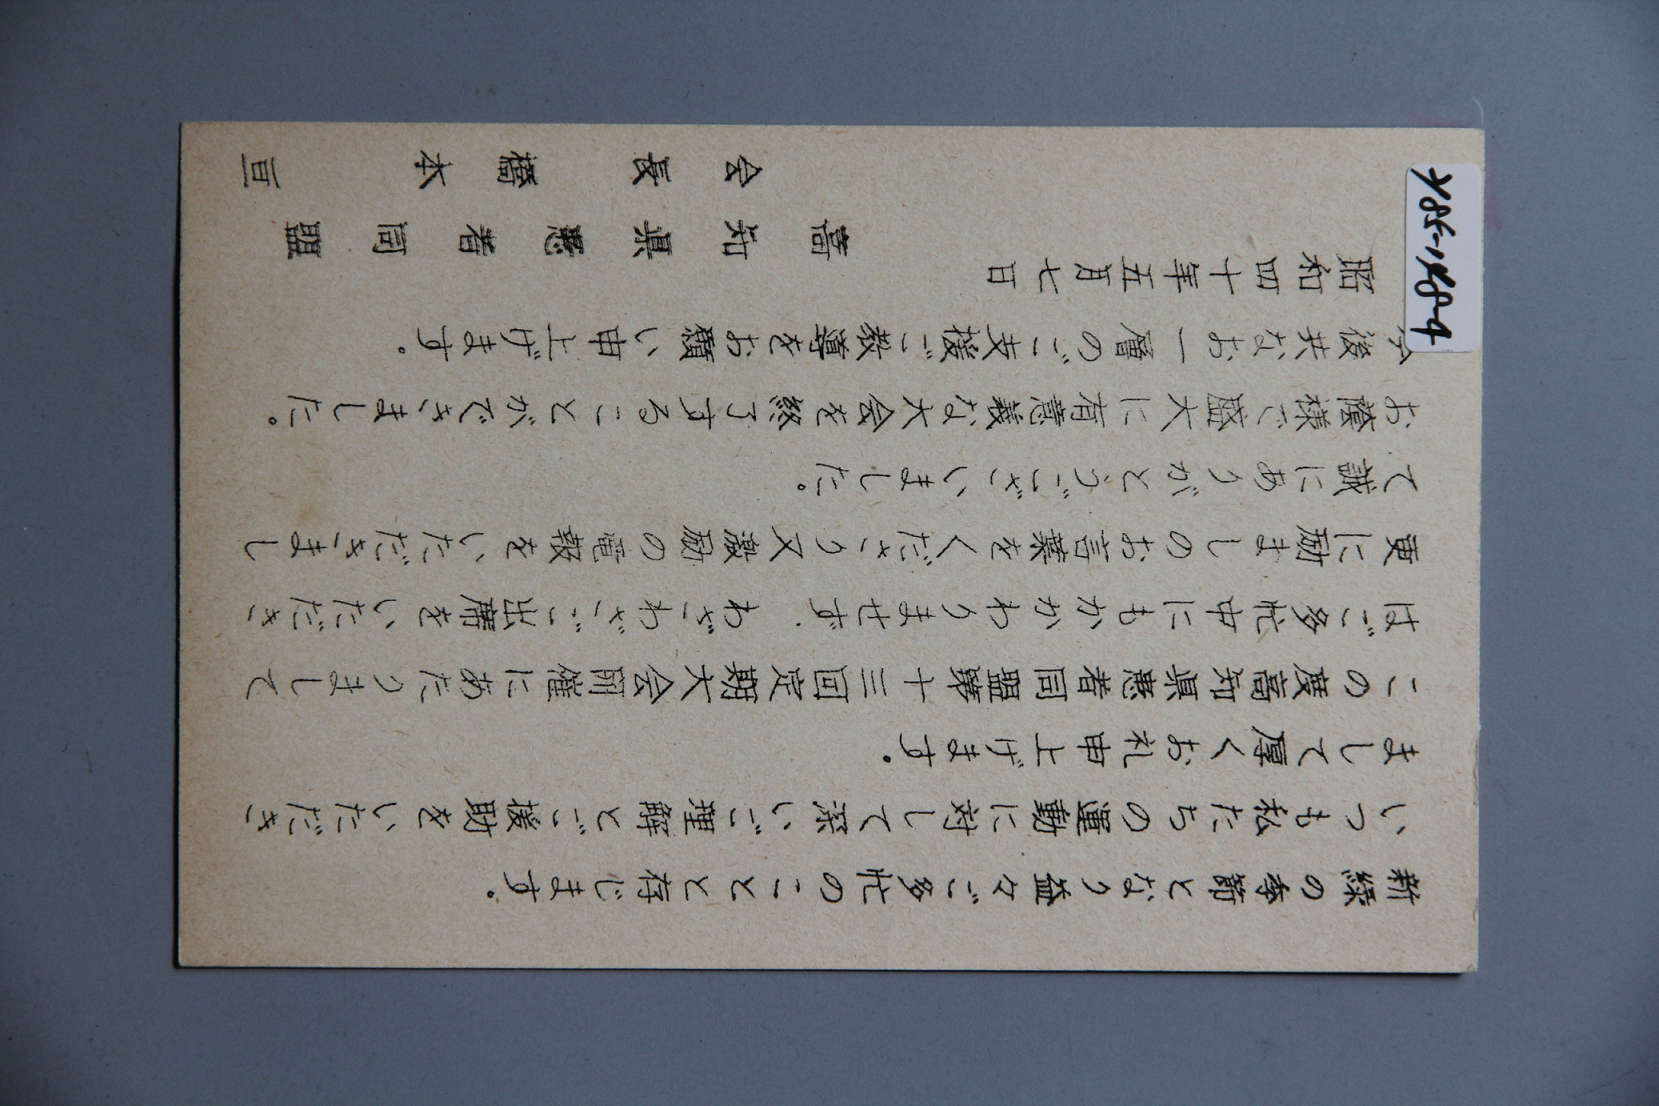 新緑の季節となり益々ご多忙のことと存じます。
いつも私たちの運動に対して深いご理解とご援助をいただき
まして厚くお礼申上げます。
この度高知県患者同盟第十三回定期大会開催にあたりまして
はご多忙中にもかかわりませず、わざわざご出席をいただき
更に励ましのお言葉をくださり又激励の電報をいただきまし
て誠にありがとうございました。
お蔭様で盛大に有意義な大会を終了することができました。
今後共なお一層のご支援ご教導をお願い申上げます。
昭和四十年五月七日
高知県患者同盟
会長 橋本 亘